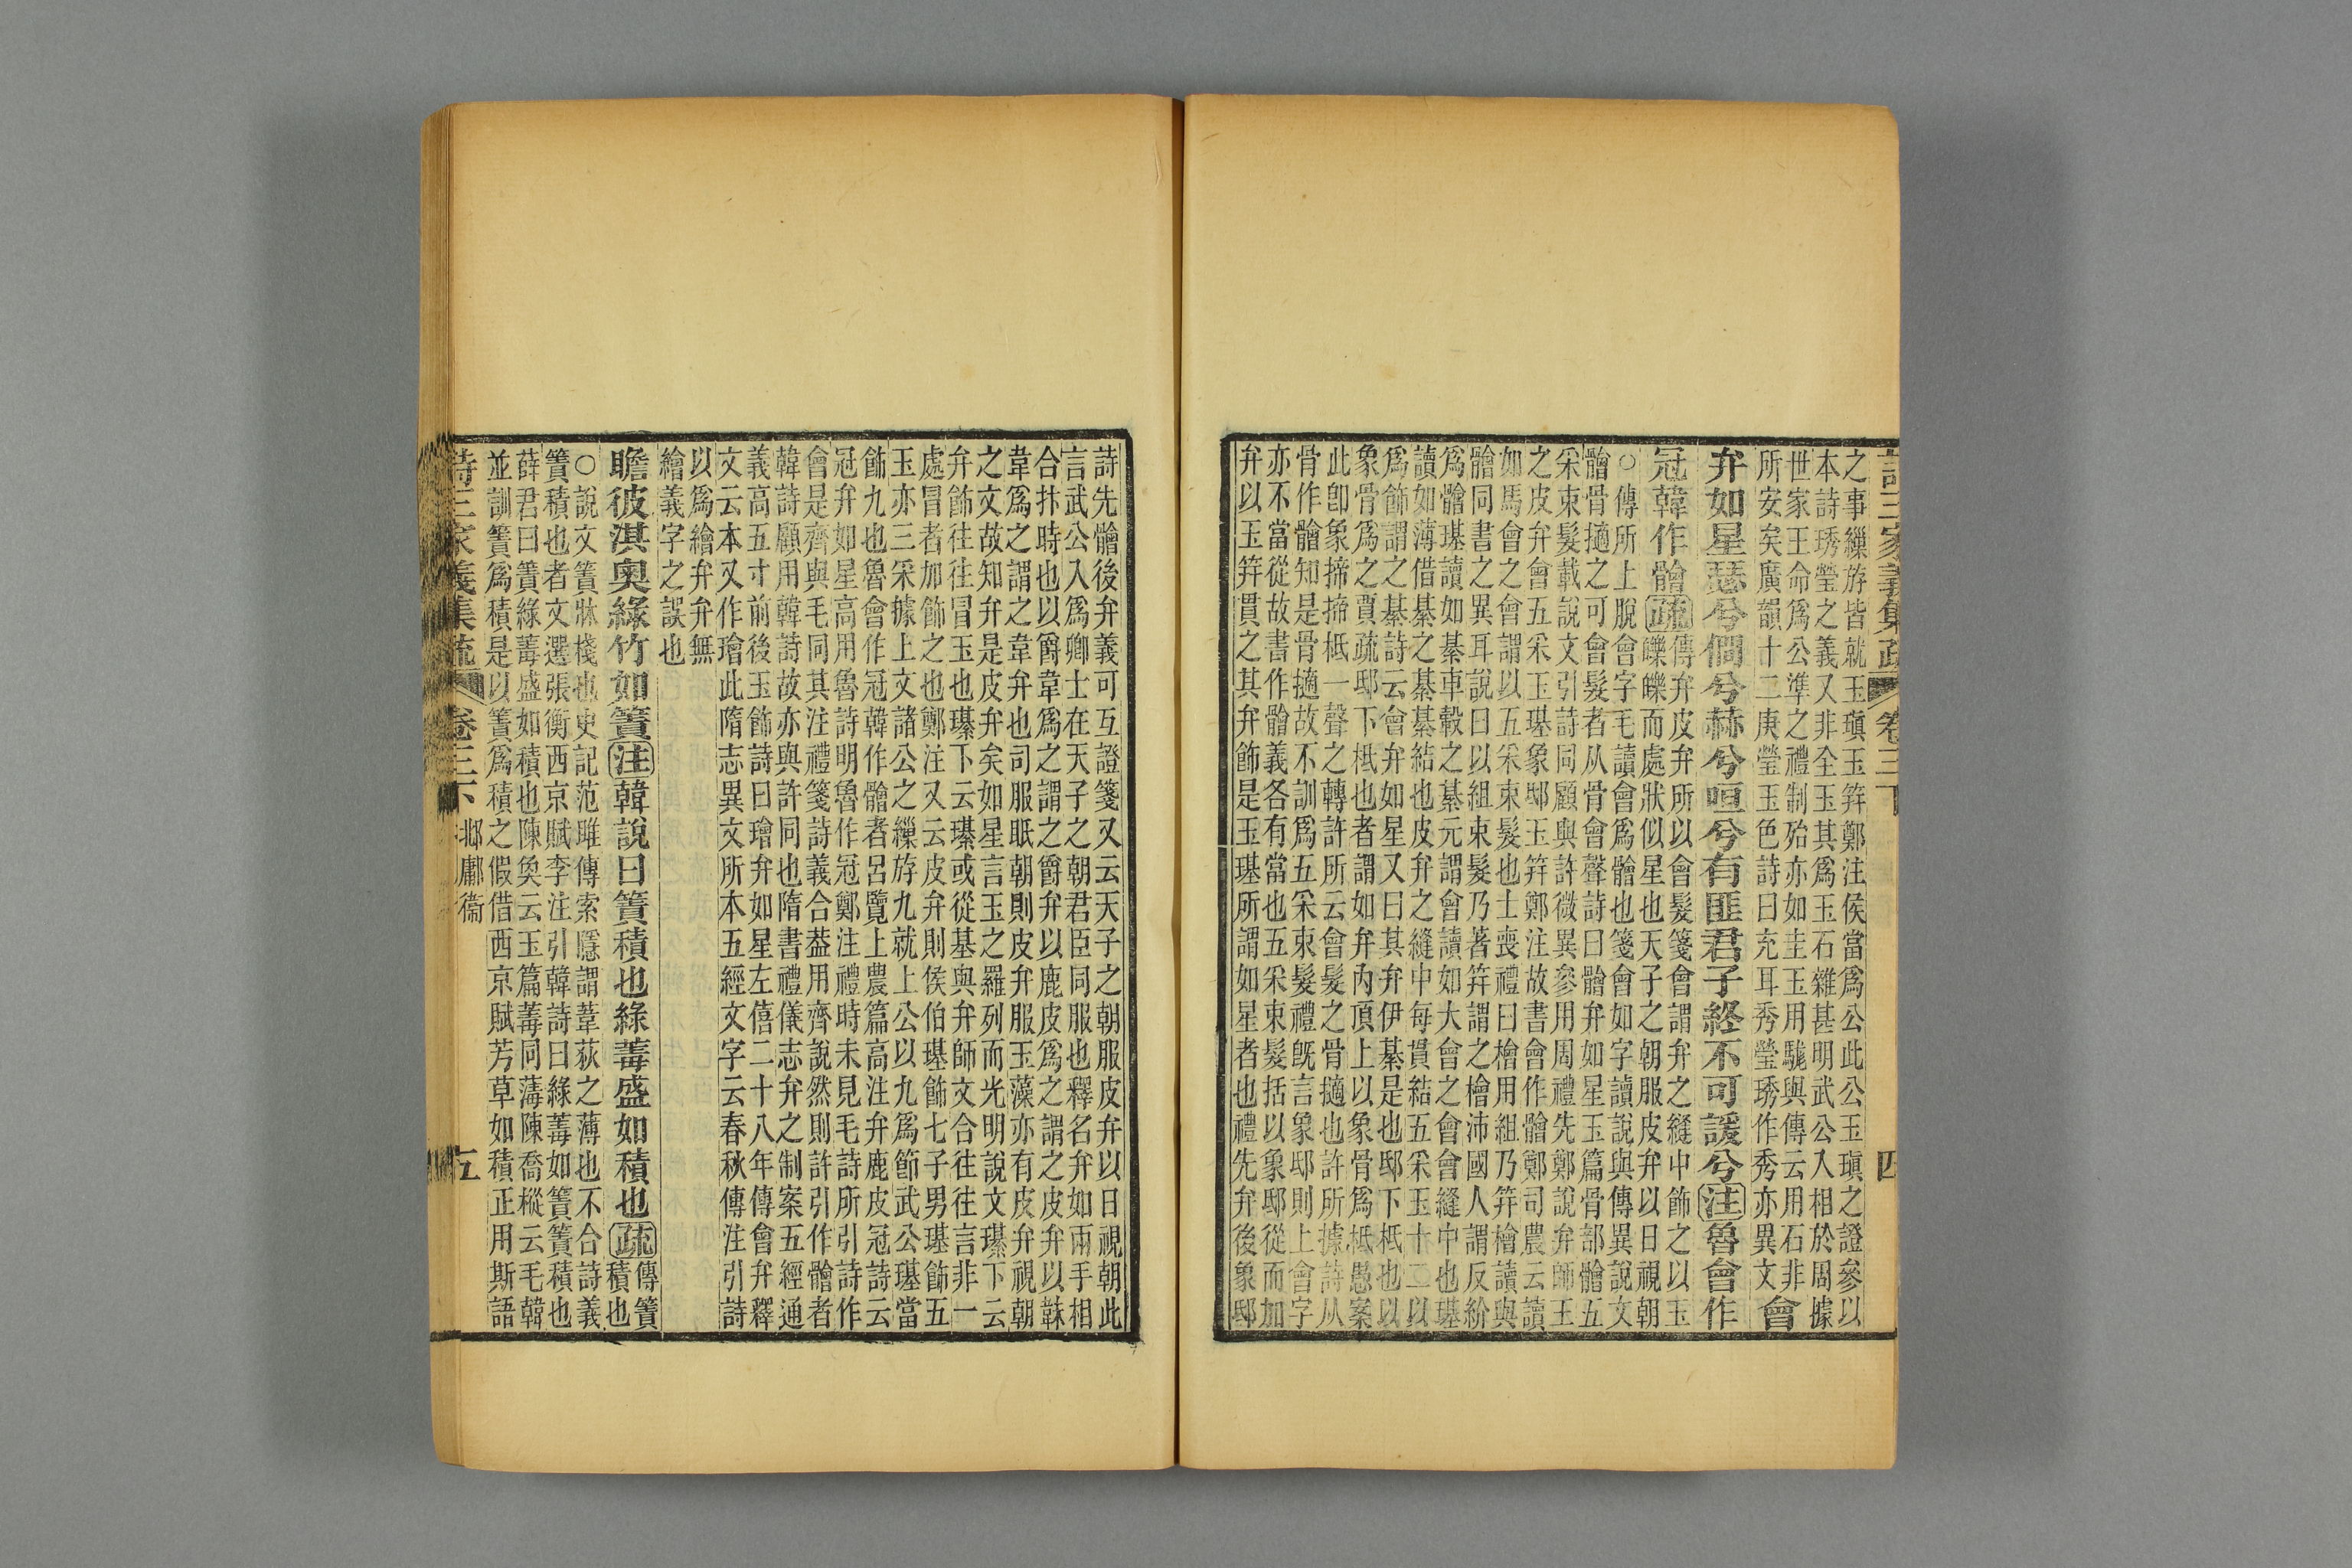 詩三家義集疏 卷三下 四
之事繅斿皆就玉瑱玉笄鄭注侯當爲公此公玉瑱之證參以
本詩琇瑩之義又非全玉其爲玉石雜甚明武公入相於周據
世家王命爲公準之禮制殆亦如圭玉用駹與傳云用石非
所安矣廣韻十二庚瑩玉色詩曰充耳秀瑩琇作秀亦異文 會
弁如星瑟兮僩兮赫兮咺兮有匪君子終不可諼兮注魯會作
冠韓作䯤疏傳弁皮弁所以會髮箋會謂弁之縫中飾之以玉
皪皪而處狀似星也天子之朝服皮弁以日視朝
○傳所上脫會字毛讀會爲䯤也箋會如字讀說與傳異說文
䯤骨擿之可會髮者从骨會聲詩曰䯤弁如星玉篇骨部䯤五
采束髮載說文引詩同顧與許微異參用周禮先鄭說弁師王
之皮弁會五采玉璂象邸玉笄鄭注故書會作䯤鄭司農云讀
如馬會之會謂以五采束髮也士喪禮曰檜用組乃笄檜讀與
䯤同書之異耳說曰以組束髮乃著笄謂之檜沛國人謂反紒
爲䯤璂讀如綦車轂之綦元謂會讀如大會之會會縫中也璂
讀如薄借綦之綦綦結也皮弁之縫中每貫結五采玉十二以
爲飾謂之綦詩云會弁如星又曰其弁伊綦是也邸下柢也以
象骨爲之賈疏邸下柢也者謂如弁內頂上以象骨爲柢愚案
此卽象揥揥柢一聲之轉許所云會髮之骨擿也許所據詩从
骨作䯤知是骨擿故不訓爲五采束髮禮旣言象邸則上會字
亦不當從故書作䯤義各有當也五采束髮括以象邸從而加
弁以玉笄貫之其弁飾是玉璂所謂如星者也禮先弁後象邸
詩先䯤後弁義可互證箋又云天子之朝服皮弁以日視朝此
言武公入爲卿士在天子之朝君臣同服也釋名弁如兩手相
合抃時也以爵韋爲之謂之爵弁以鹿皮爲之謂之皮弁以韎
韋爲之謂之韋弁也司服眂朝則皮弁服玉藻亦有皮弁視朝
之文故知弁是皮弁矣如星言玉之羅列而光明說文璂下云
弁飾往往冒玉也璂下云璂或從基與弁師文合往往言非一
處冒者加飾之也鄭注又云皮弁則侯伯璂飾七子男璂飾五
玉亦三采據上文諸公之繅斿九就上公以九爲節武公璂當
飾九也魯會作冠韓作䯤者呂覽上農篇高注弁鹿皮冠詩云
冠弁如星高用魯詩明魯作冠鄭注禮時未見毛詩所引詩作
會是齊與毛同其注禮箋詩義合葢用齊說然則許引作䯤者
韓詩顧用韓詩故亦與許同也隋書禮儀志弁之制案五經通
義高五寸前後玉飾詩曰璯弁如星左僖二十八年傳會弁釋
文云本又作璯此隋志異文所本五經文字云春秋傳注引詩
以爲繪弁弁無
繪義字之誤也
瞻彼淇奧綠竹如簀注韓說曰簀積也綠䓯盛如積也疏傳簀
積也
○說文簀牀棧也史記范雎傳索隱謂葦荻之薄也不合詩義
簀積也者文選張衡西京賦李注引韓詩曰綠䓯如簀簀積也
薛君曰簀綠䓯盛如積也陳奐云玉篇䓯同薄陳喬樅云毛韓
並訓簀爲積是以簀爲積之假借西京賦芳草如積正用斯語
詩三家義集疏 卷三下 邶鄘衞 五